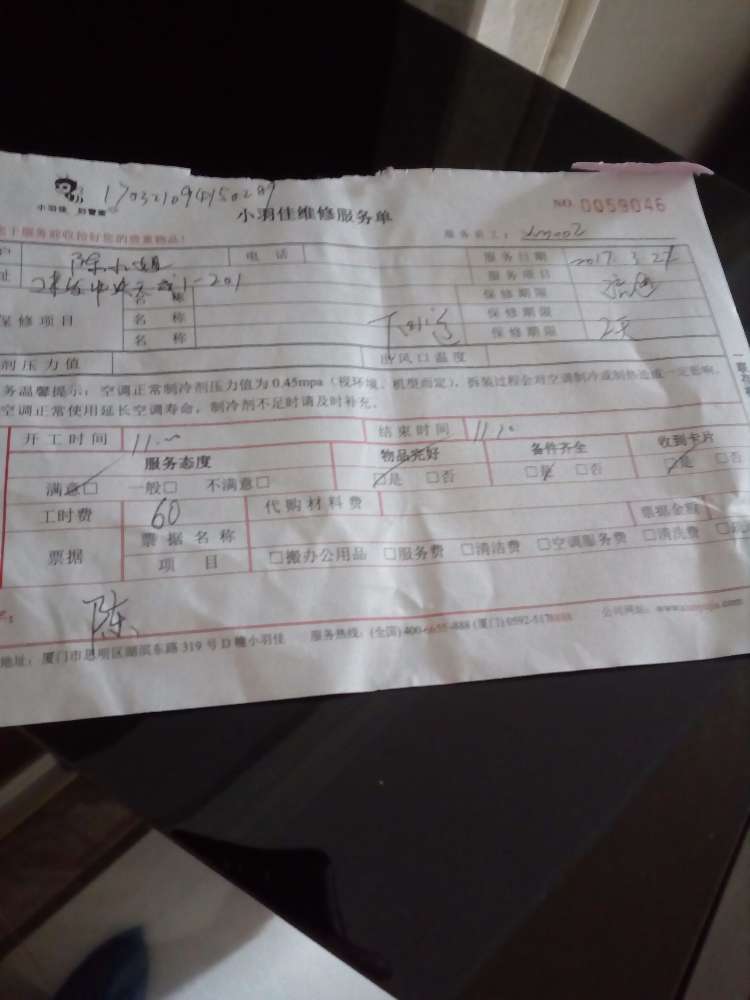 小羽佳 好管家 170321094150287
小羽佳维修服务单 NO. 0059046
服务前收拾好您的贵重物品! 服务员工:
陈小姐 电话 服务日期 2017.3.27
1-201 服务项目
保修项目 名称 保修期限
名称 下水道 保修期限
名称 保修期限 2天
剂压力值 出风口温度
务温馨提示:空调正常制冷剂压力值为0.45mpa(视环境、机型而定),拆装过程会对空调制冷或制热造成一定影响,
空调正常使用延长空调寿命,制冷剂不足时请及时补充。
开工时间 结束时间
服务态度 物品完好 备件齐全 收到卡片
满意□ 一般□ 不满意□ □是 □否 □是 □否 □是 □否
工时费 60 代购材料费 票据金额
票据 票据名称
项目 □搬办公用品 □服务费 □清洁费 □空调服务费 □清洗费
陈
地址:厦门市思明区湖滨东路319号D幢小羽佳 服务热线:(全国)400-6655-888 (厦门)0592-5178888 公司网址: